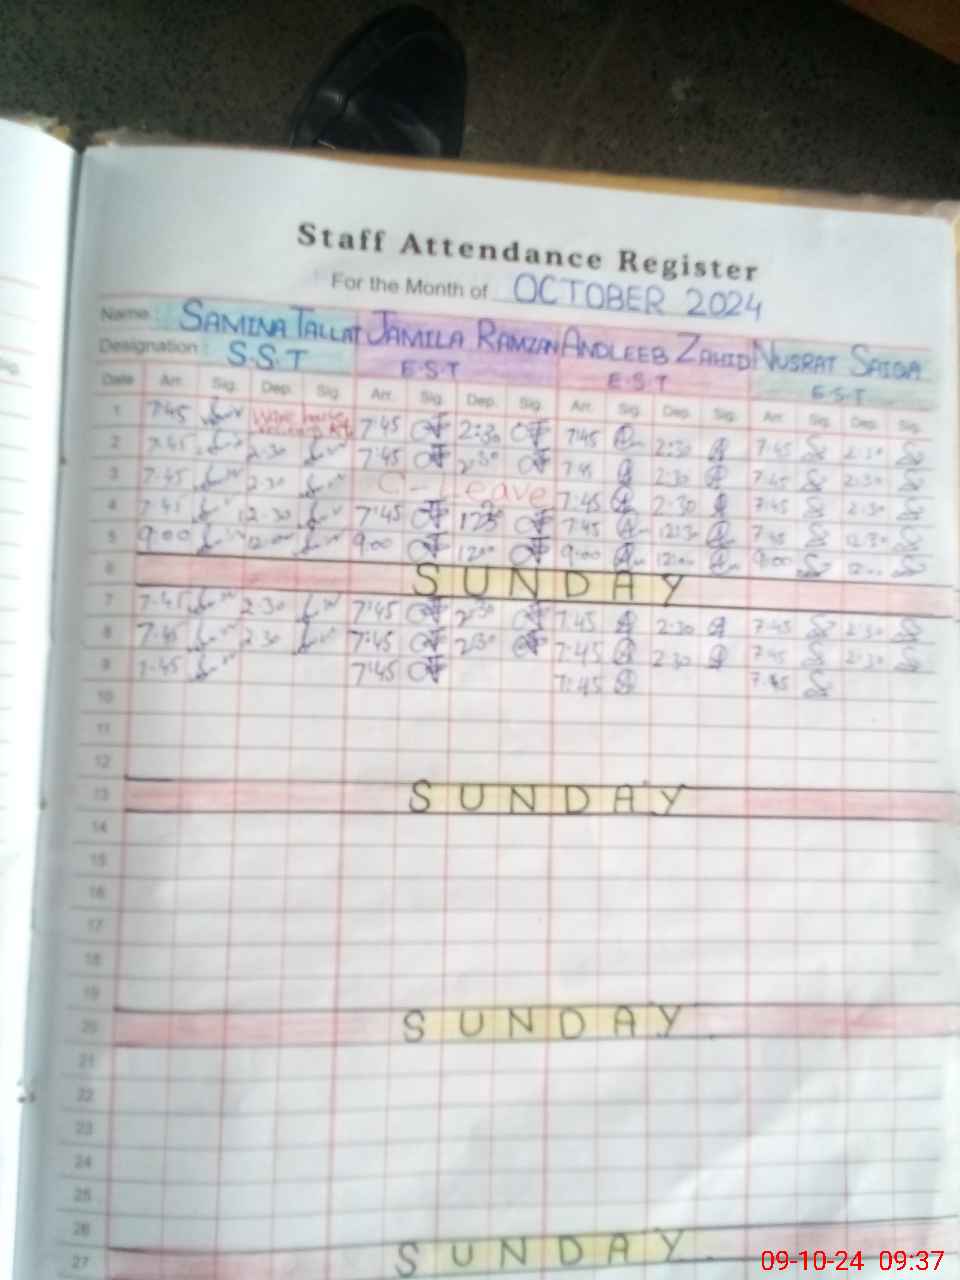 Staff Attendance Register
For the Month of OCTOBER 2024
Name SAMINA TALLAT JAMILA RAMZAN ANDLEEB ZAHID NUSRAT SAIDA
Designation S.S.T E.S.T E.S.T E.S.T
Date Arr. Sig. Dep. Sig. Arr. Sig. Dep. Sig. Arr. Sig. Dep. Sig. Arr. Sig. Dep. Sig.
1 7:45 7:45 2:30 7:45 2:30 7:45 2:30
2 7:45 2:30 7:45 2:30 7:45 2:30 7:45 2:30
3 7:45 2:30 C-Leave 7:45 2:30 7:45 2:30
4 7:45 12:30 7:45 7:45 12:30 7:45 12:30
5 9:00 12:00 9:00 12:00 9:00 12:00 9:00 12:00
6 SUNDAY
7 7:45 2:30 7:45 2:30 7:45 2:30 7:45 2:30
8 7:45 2:30 7:45 2:30 7:45 2:30 7:45 2:30
9 7:45 7:45 7:45 7:45
10
11
12
13 SUNDAY
14
15
16
17
18
19
20 SUNDAY
21
22
23
24
25
26
27 SUNDAY
09-10-24 09:37